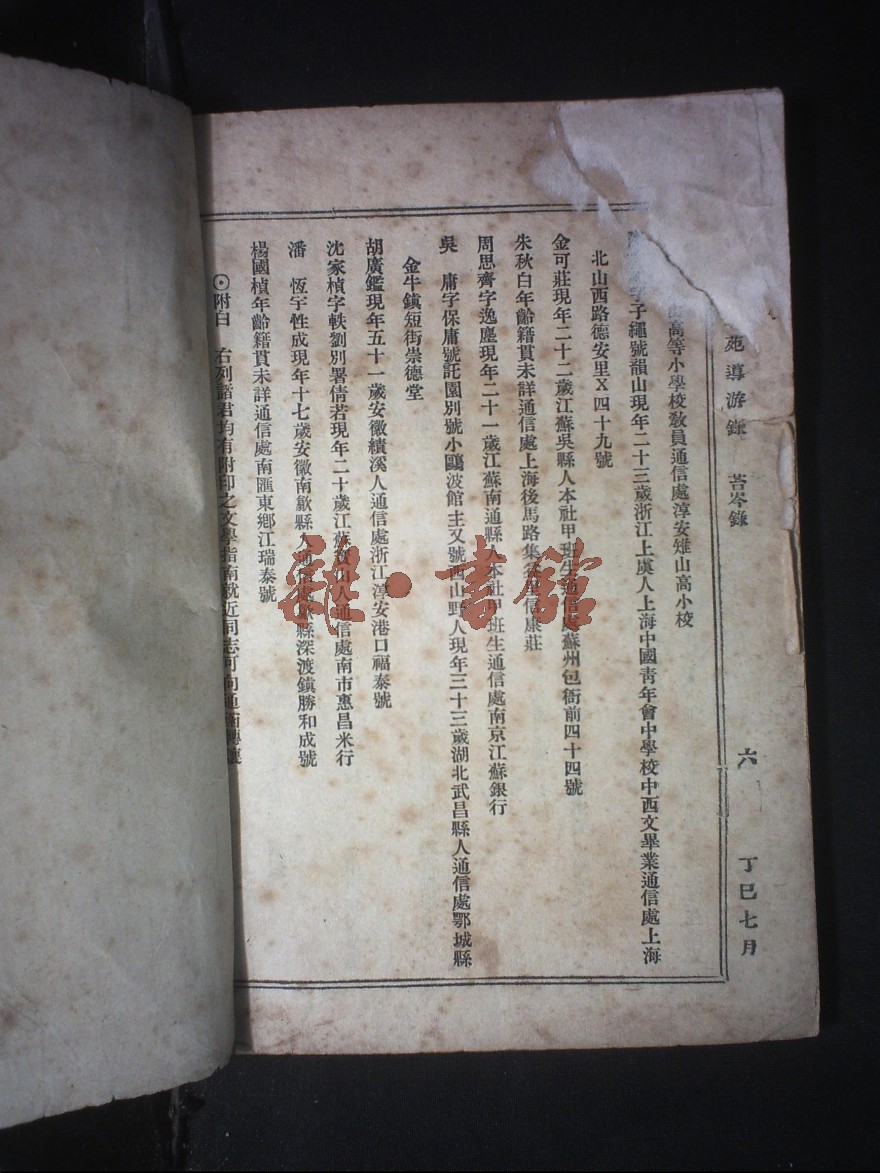 苑導游錄　苔岑錄　六　丁巳七月
高等小學校教員通信處淳安雉山高小校
字子繩號韻山現年二十三歲浙江上虞人上海中國青年會中學校中西文畢業通信處上海
北山西路德安里X四十九號
金可莊現年二十二歲江蘇吳縣人本社甲班生通信處蘇州包衙前四十四號
朱秋白年齡籍貫未詳通信處上海後馬路集益里信康莊
周思齊字逸塵現年二十一歲江蘇南通縣人本社甲班生通信處南京江蘇銀行
吳　庸字保庸號託園別號小鷗波館主又號西山野人現年三十三歲湖北武昌縣人通信處鄂城縣
金牛鎮短街崇德堂
胡廣鑑現年五十一歲安徽績溪人通信處浙江淳安港口福泰號
沈家楨字軼劉別署倩若現年二十歲江蘇寶山人通信處南市惠昌米行
潘　恆字性成現年十七歲安徽南歙縣人通信處歙縣深渡鎮勝和成號
楊國楨年齡籍貫未詳通信處南匯東鄉江瑞泰號
⊙附白　右列諸君均有附印之文學指南就近同志可向通
雅·書館